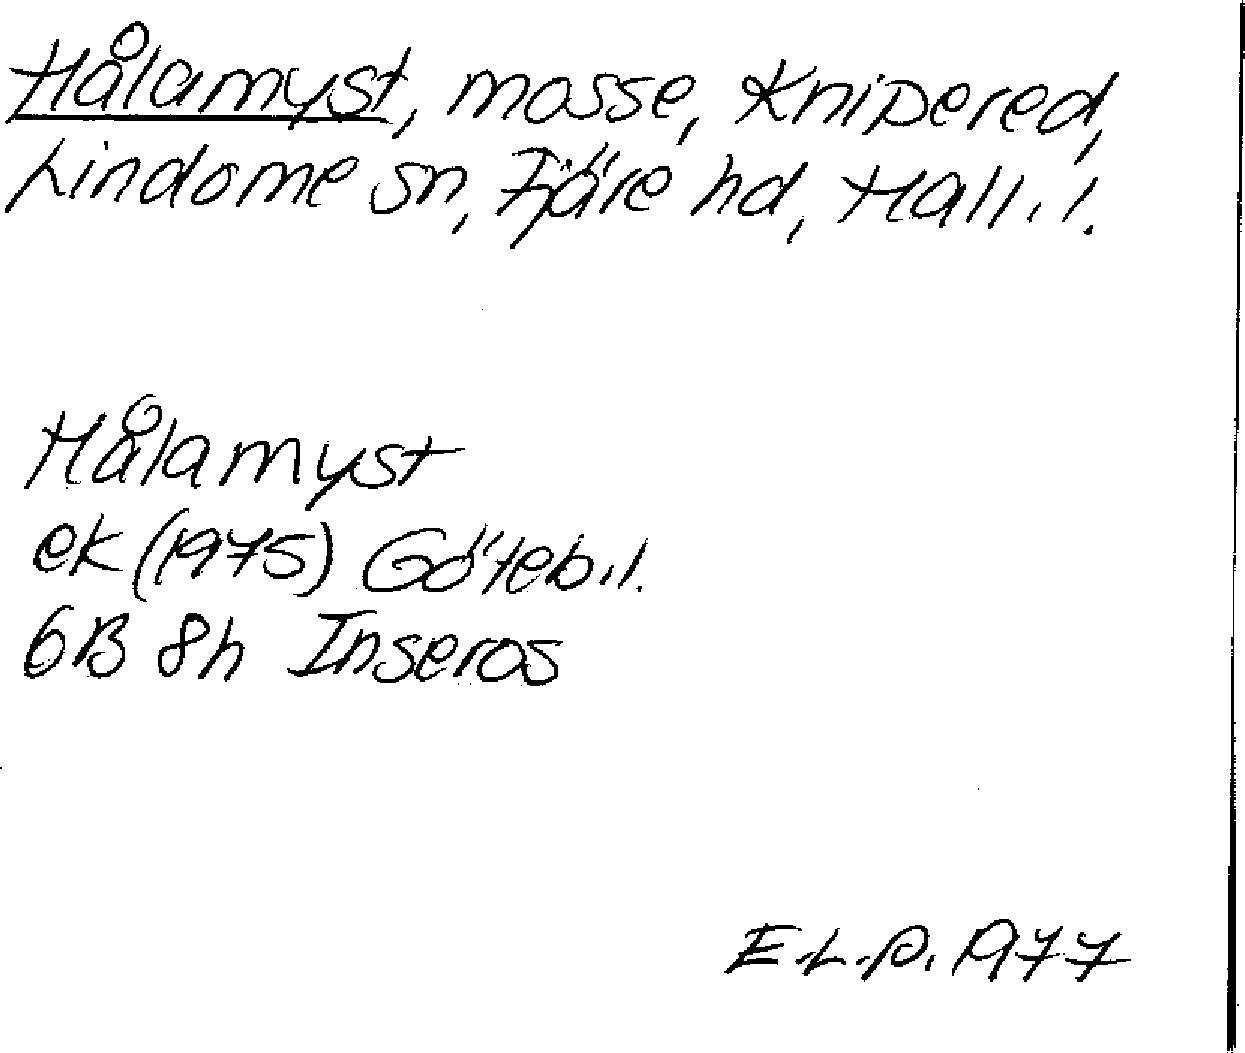 Hålamyst, mosse, Knipered,
Lindome sn, Fjäre hd, Hall.l.
Hålamyst
ek (1975) Göteb.l.
6B 8h Inseros
E.L.P. 1977